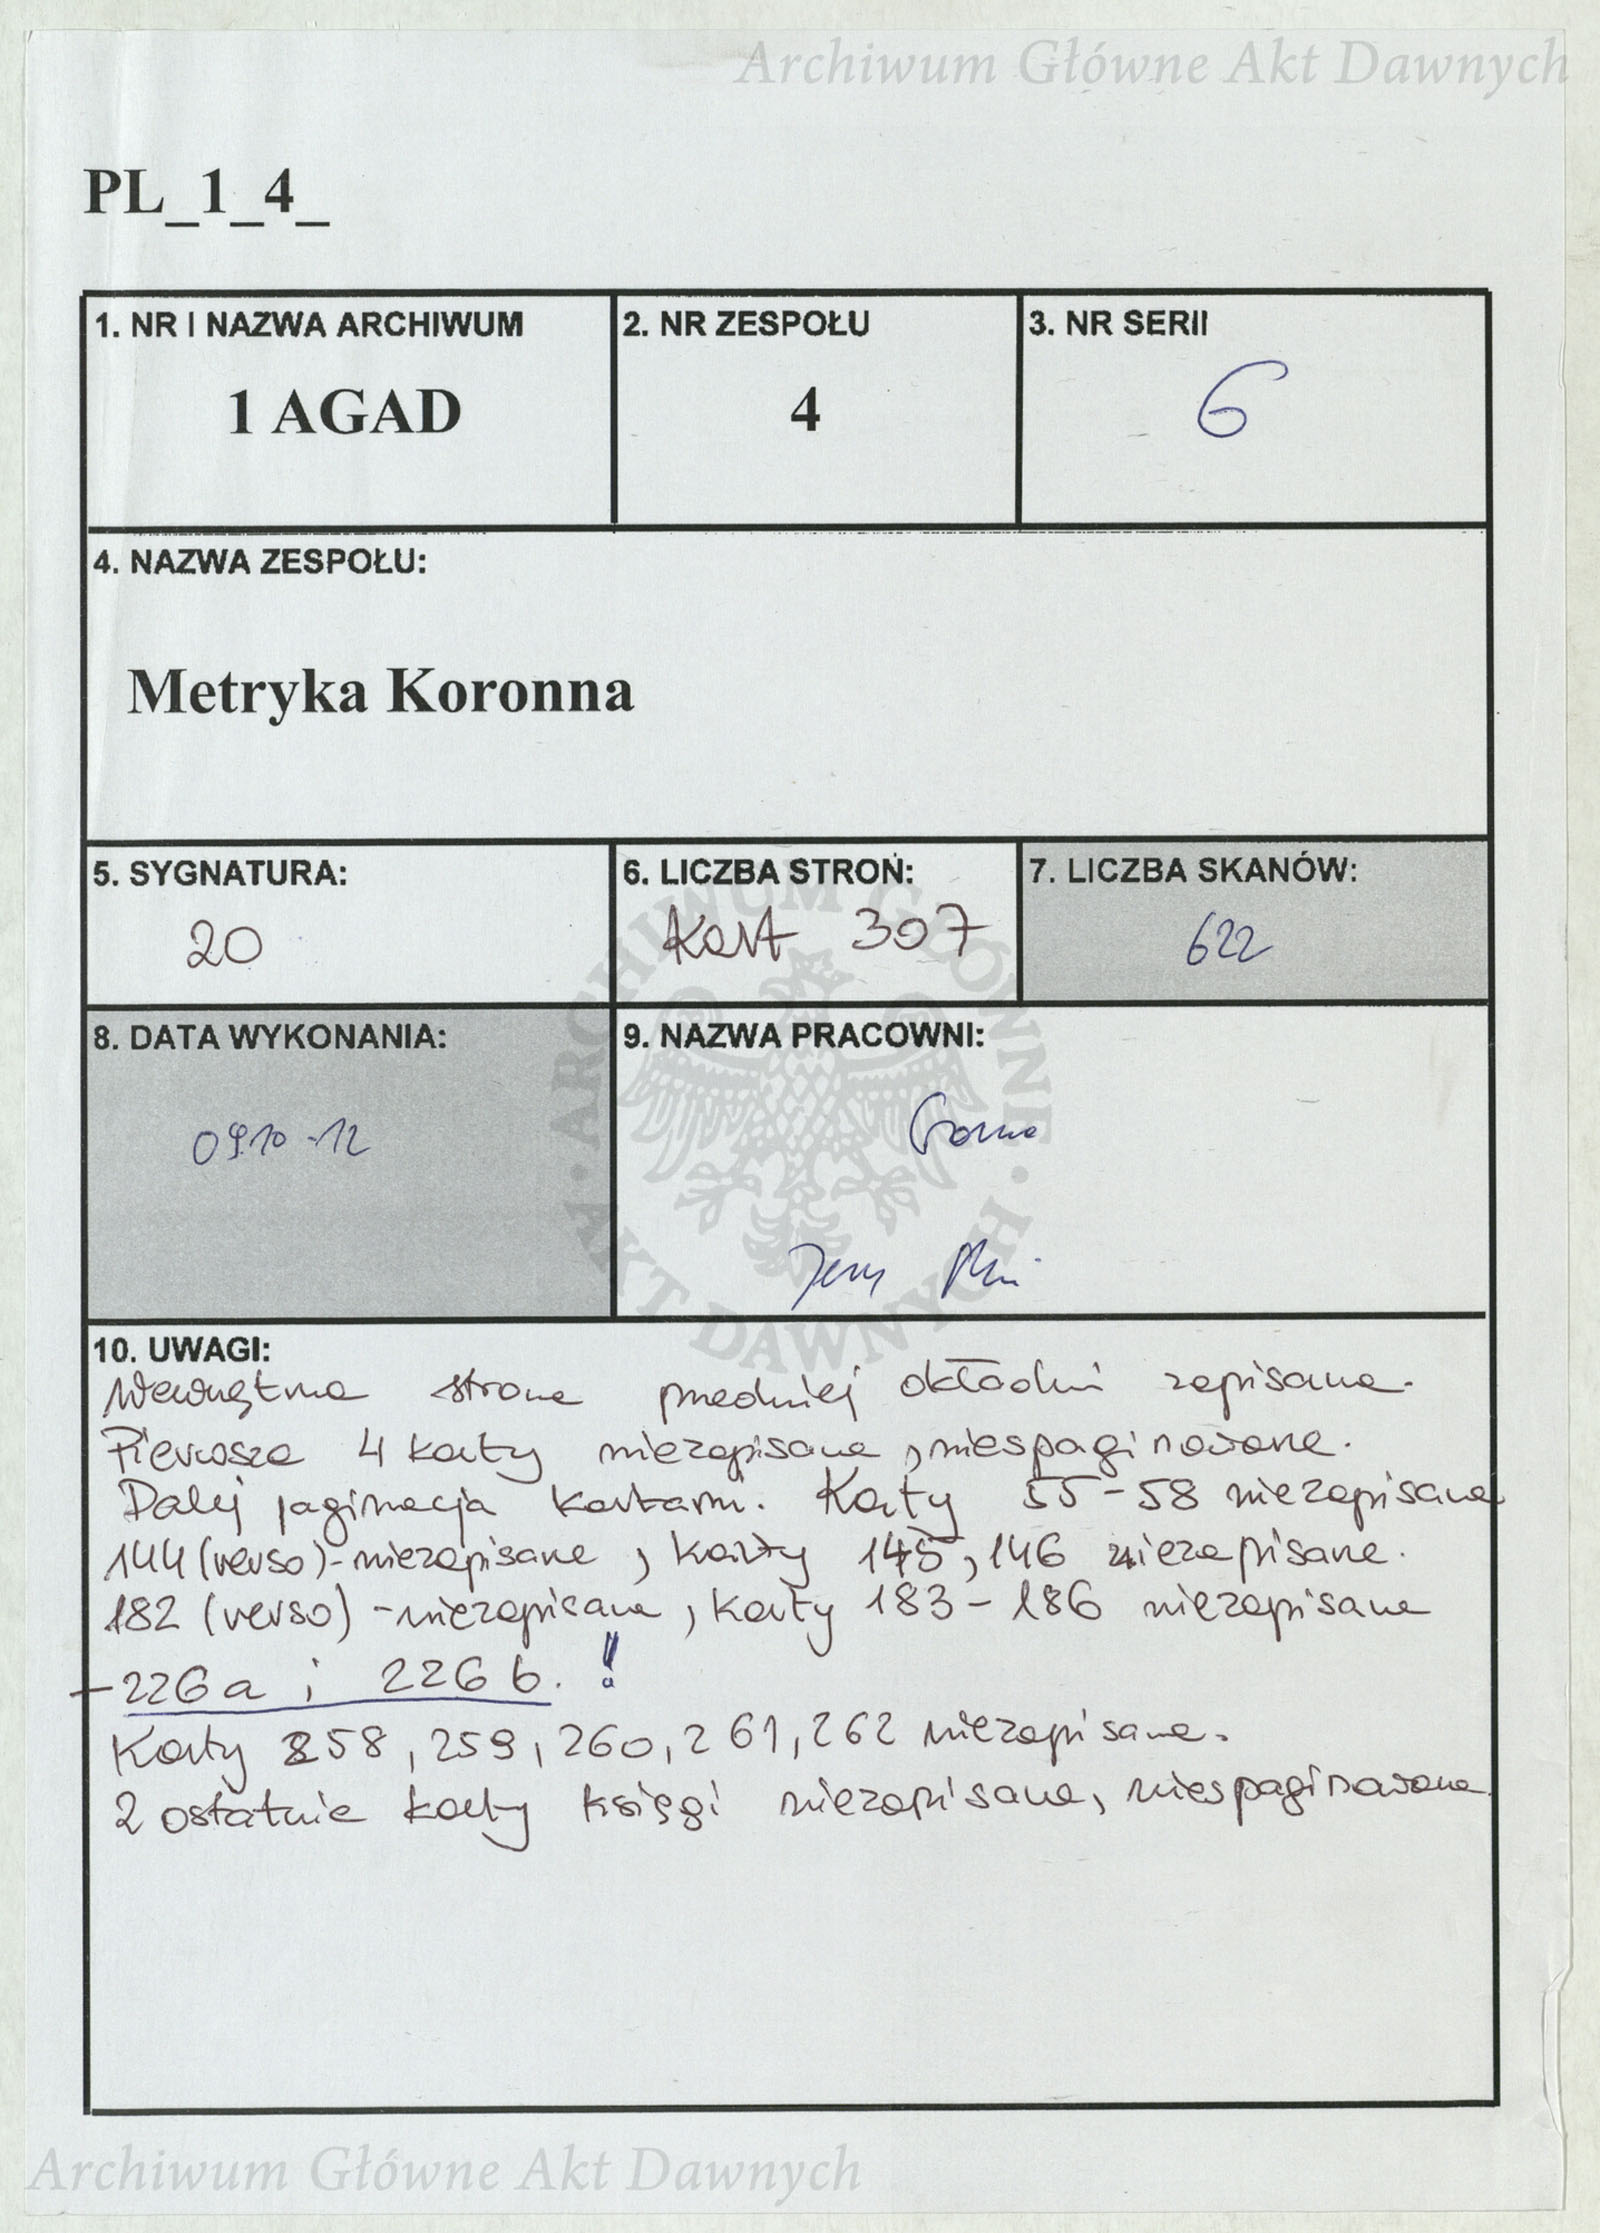 Archiwum Główne Akt Dawnych
PL_1_4_
1. NR I NAZWA ARCHIWUM
1 AGAD
2. NR ZESPOŁU
4
3. NR SERII
6
4. NAZWA ZESPOŁU:
Metryka Koronna
5. SYGNATURA:
20
6. LICZBA STRON:
Kart 307
7. LICZBA SKANÓW:
622
8. DATA WYKONANIA:
09.10-12
9. NAZWA PRACOWNI:
ARCHIWUM GŁÓWNE · AKT DAWNYCH ·
10. UWAGI:
Wewnętrzna strona przedniej okładki zapisana.
Pierwsze 4 karty niezapisane, niespaginowane.
Dalej paginacja kartami. Karty 55-58 niezapisane
144 (verso)-niezapisane, karty 145, 146 niezapisane.
182 (verso) -niezapisane, karty 183-186 niezapisane
-226a i 226b. !
Karty 258, 259, 260, 261, 262 niezapisane.
2 ostatnie karty księgi niezapisane, niespaginowane
Archiwum Główne Akt Dawnych